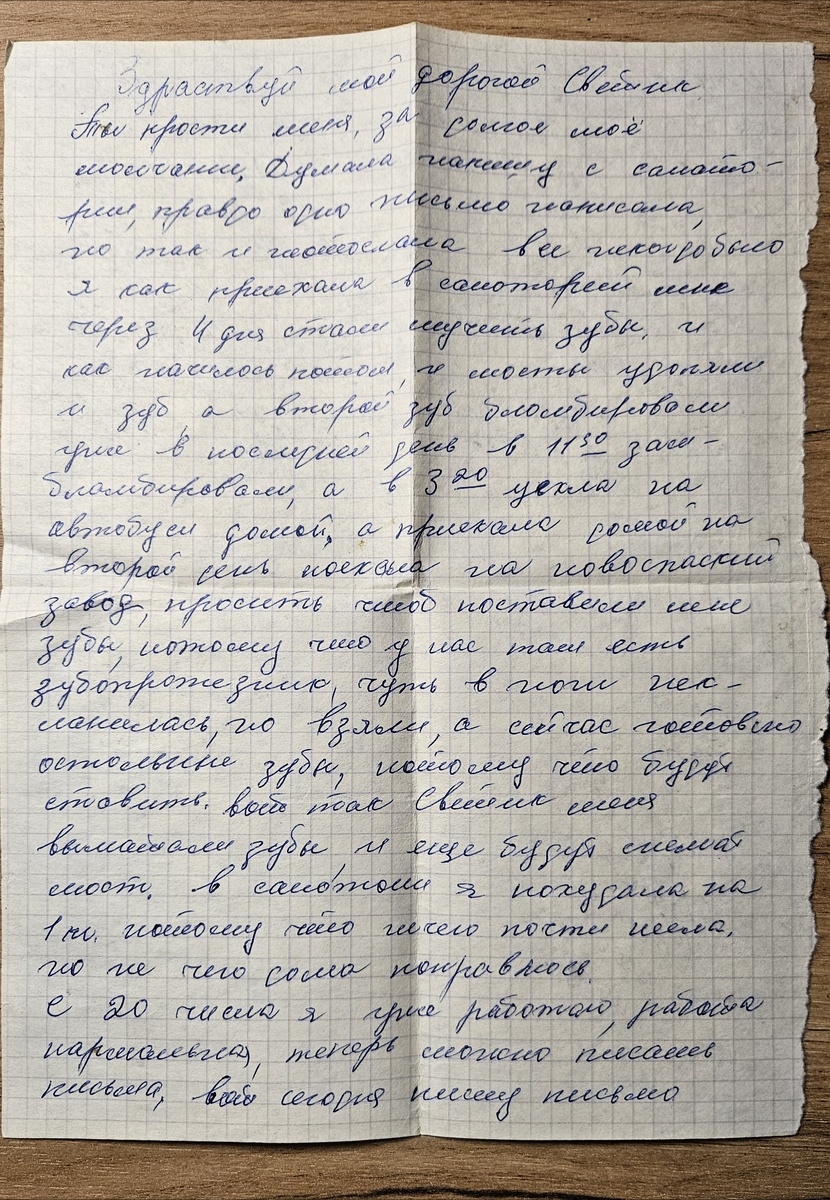 Здраствуй мой дорогой Светик
Ты прости меня, за долгое моё
молчание, Думала напишу с санато-
рии, правдо одно письмо написала,
но так и неотослала все некогдобыло
я как приехала в санаторий мне
через 4 дня стали мучить зубы, и
как началось потом, и мосты удоляли
и зуб, а второй зуб бломбировали
уже в последней день в 11 30 зам-
бломбировали, а в 3 20 уехла на
автобуси домой, а приехала домой на
второй день поехала на новоспаский
завод, просить чтоб поставили мне
зубы, потому что у нас там есть
зубопротезник, чуть в ноги нек-
ланилась, но взяли, а сейчас готовлю
остольные зубы, потому что будут
ставить. вот так Светик меня
вымотали зубы, и еще будут снемат
мост. в санотоии я похудала на
1 кг. потому что ничего почти неела,
но не чего дома поправлюсь.
С 20 числа я уже работаю, работа
нармальная, теперь можно писать
письма, вот сегодня пишу письмо